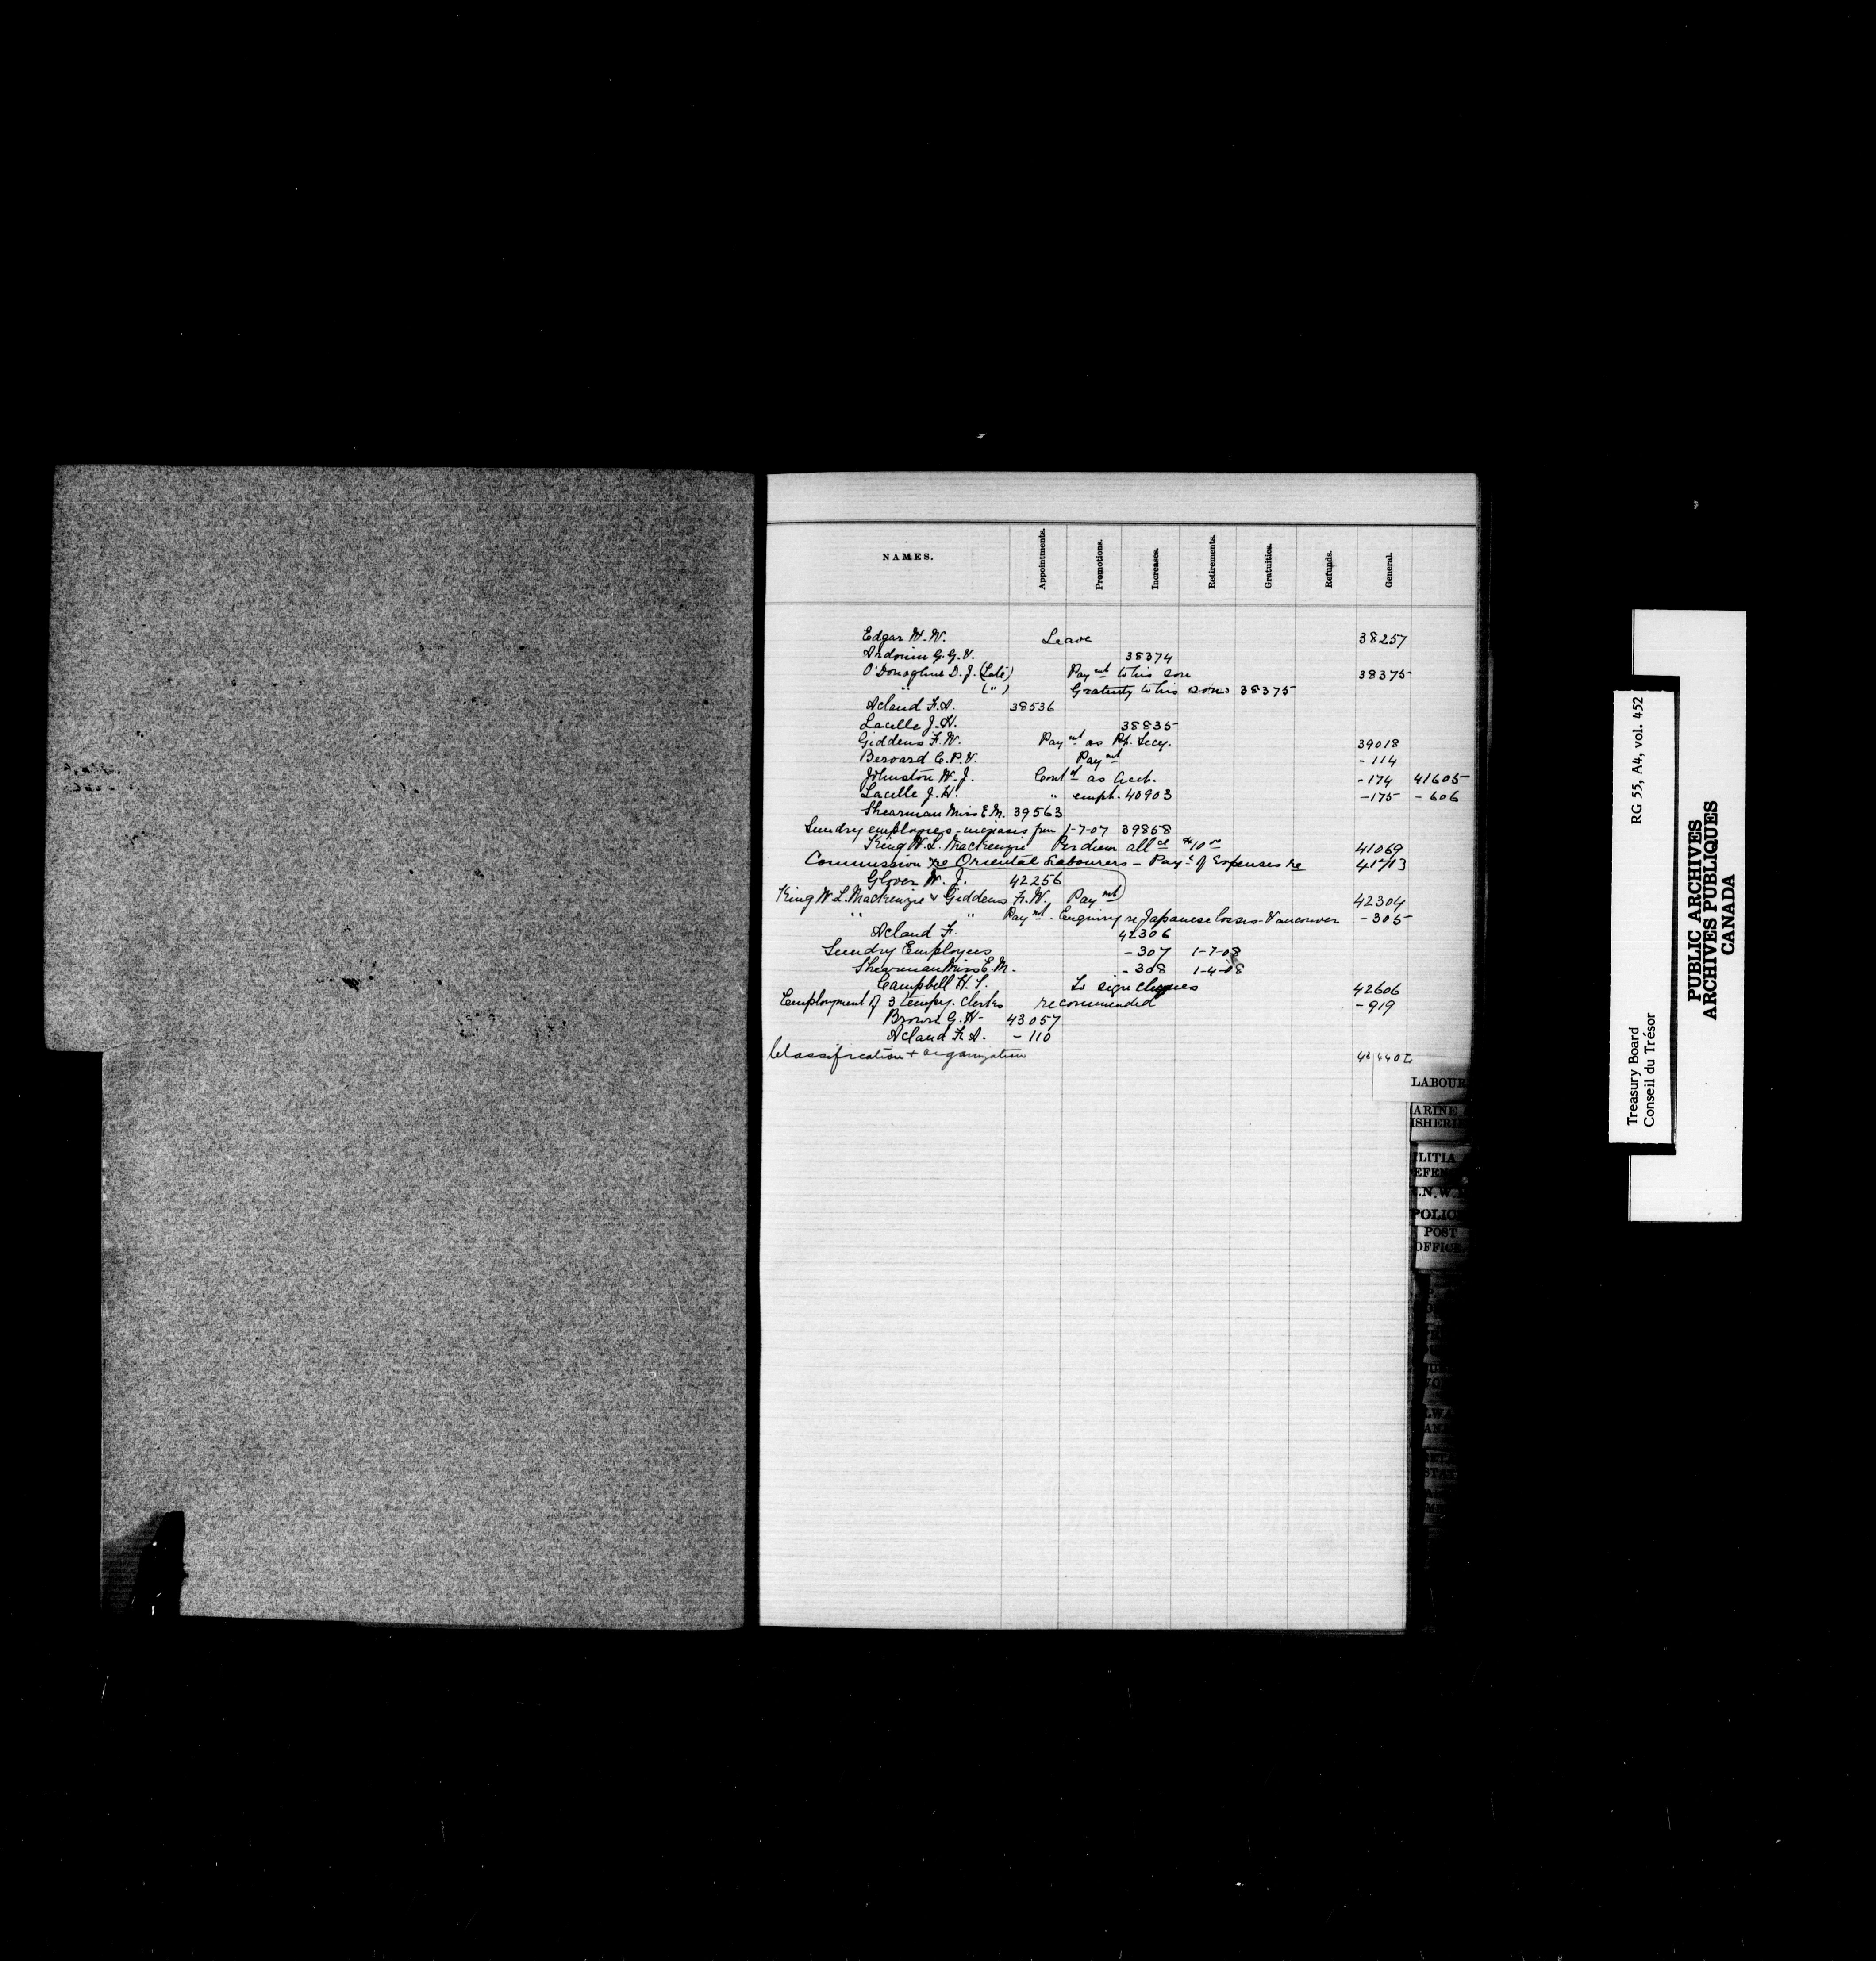 NAMES. Appointments. Promotions. Increases. Retirements. Gratuities. Refunds. General.
Edgar W. W. Leave 38257
Ardouin G. G. V. 38374
O'Donoghue D. J. (Late) Paymt to his son 38375
" (") Gratuity to his sons 38375
Acland F. A. 38536
Lacelle J. H. 38835
Giddens F. W. Paymt as Pt. Secy. 39018
Beroard C. P. V. Paymt - 114
Johnston W. J. Contd as Acct. - 174 41605
Lacelle J. H. " emplt. 40903 - 175 - 606
Shearman Miss E. M. 39563
Sundry employees - increases from 1-7-07 39858
King W. L. MacKenzie Per diem allce $10 00 41069
Commission re Oriental Labourers - Payt of Expenses re 41713
Glover W. J. 42256
King W. L. MacKenzie & Giddens F. W. Paymt 42304
" " Paymt. Enquiry re Japanese losses - Vancouver - 305
Acland F. 42306
Sundry Employees - 307 1-7-08
Shearman Miss E. M. - 308 1-4-08
Campbell H. To sign cheques 42606
Employment of 3 tempy. clerks recommended - 919
Brown G. H. 43057
Acland F. A. - 110
Classification + organization
LABOUR
ARINE
ISHERIE
ILITIA
EFENC
.N.W.
POLICE
POST
OFFICE.
Treasury Board RG 55, A4, vol. 452
Conseil du Trésor
PUBLIC ARCHIVES
ARCHIVES PUBLIQUES
CANADA